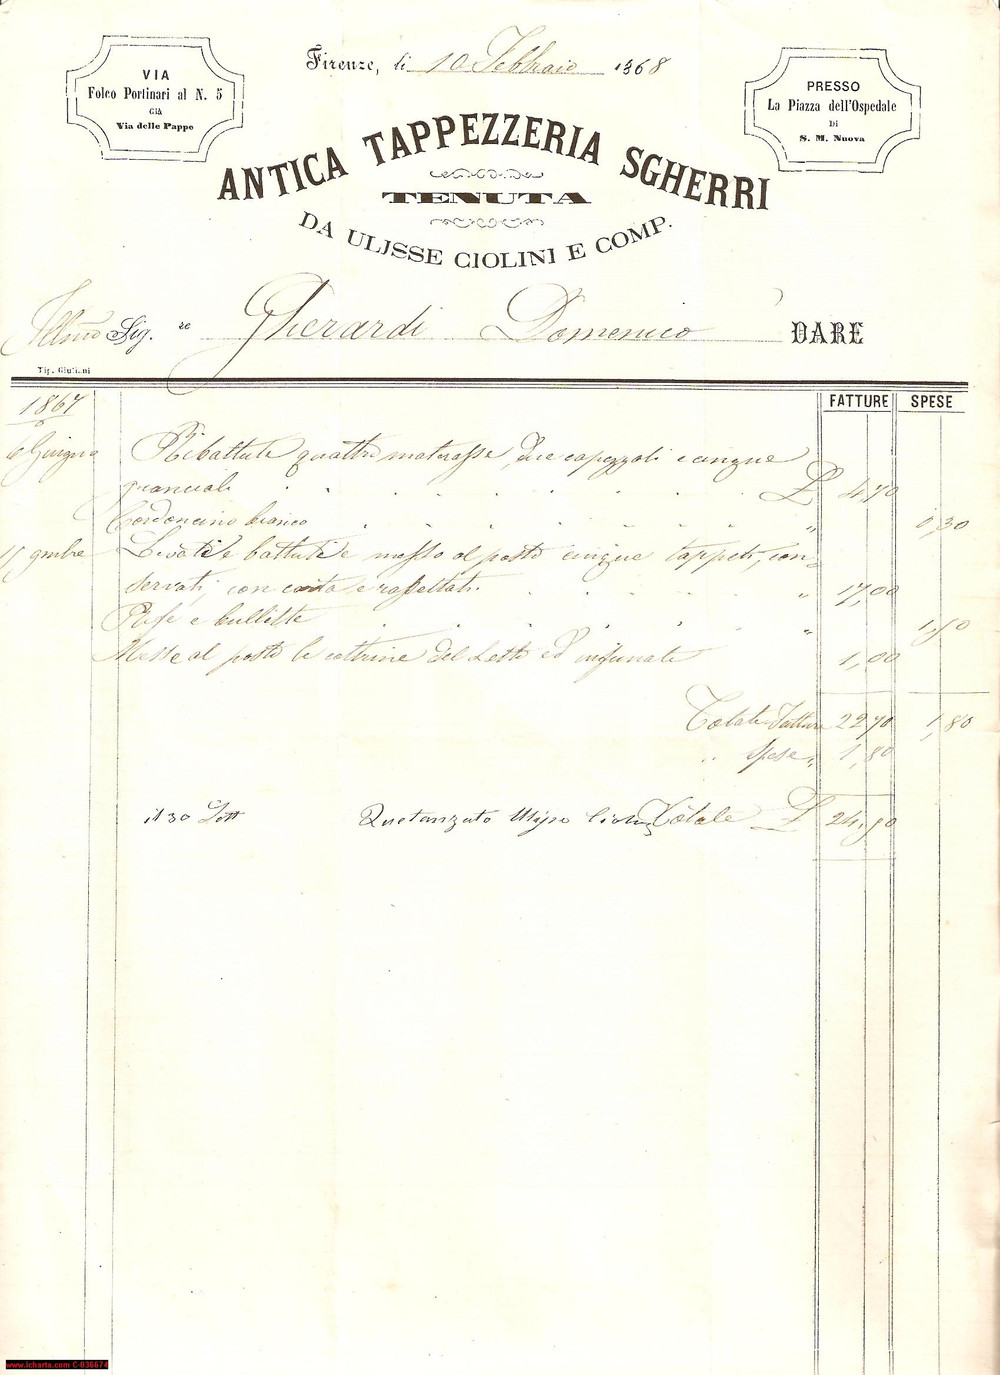 VIA
Folco Portinari al N. 5
GIÀ
Via delle Pappe
Firenze, li 10 Febbraio 1868
PRESSO
La Piazza dell'Ospedale
DI
S. M. Nuova
ANTICA TAPPEZZERIA SGHERRI
TENUTA
DA ULISSE CIOLINI E COMP.
Illmo Sig. re Gherardi Domenico DARE
Tip. Giuliani
1867 FATTURE SPESE
6 Giugno Ribattute quattro materasse, due capezzoli e cinque
guanciali £ 4,70
Cordoncino bianco " 0,30
9mbre Levati e battuti e messo al posto cinque tappeti, con-
servati, con carta e rassettati. " 17,00
Refe e bullette " 1,50
Messe al posto le coltrine del Letto ed infunate 1,00
Totale Fatture 22,70 1,80
" Spese " 1,80
Totale £ 24,50
il 30 Quetanzato
www.icharta.com C-036674